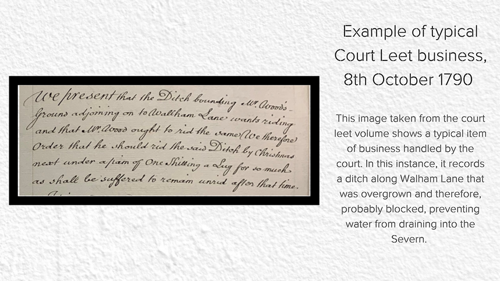 We present that the Ditch bounding Mr. Woods
ground adjoining on to Walham Lane wants riding
and that Mr. Wood ought to rid the same, We therefore
Order that he should rid the said Ditch by Christmas
next under a pain of One Shilling a Lug for so much
as shall be suffered to remain unrid after that time.
Example of typical
Court Leet business,
8th October 1790
This image taken from the court
leet volume shows a typical item
of business handled by the
court. In this instance, it records
a ditch along Walham Lane that
was overgrown and therefore,
probably blocked, preventing
water from draining into the
Severn.